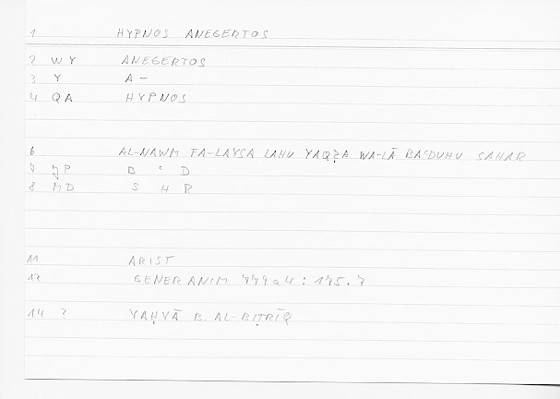 1 HYPNOS ANEGERTOS
2 WY ANEGERTOS
3 Y A-
4 QA HYPNOS
6 AL-NAWM FA-LAYSA LAHU YAQẒA WA-LĀ BAʿDUHU SAHAR
7 B ʿ D
8 MD S H R
11 ARIST
12 GENER ANIM 779a4 : 175.7
14 ? YAḤYĀ B. AL-BIṬRĪQ